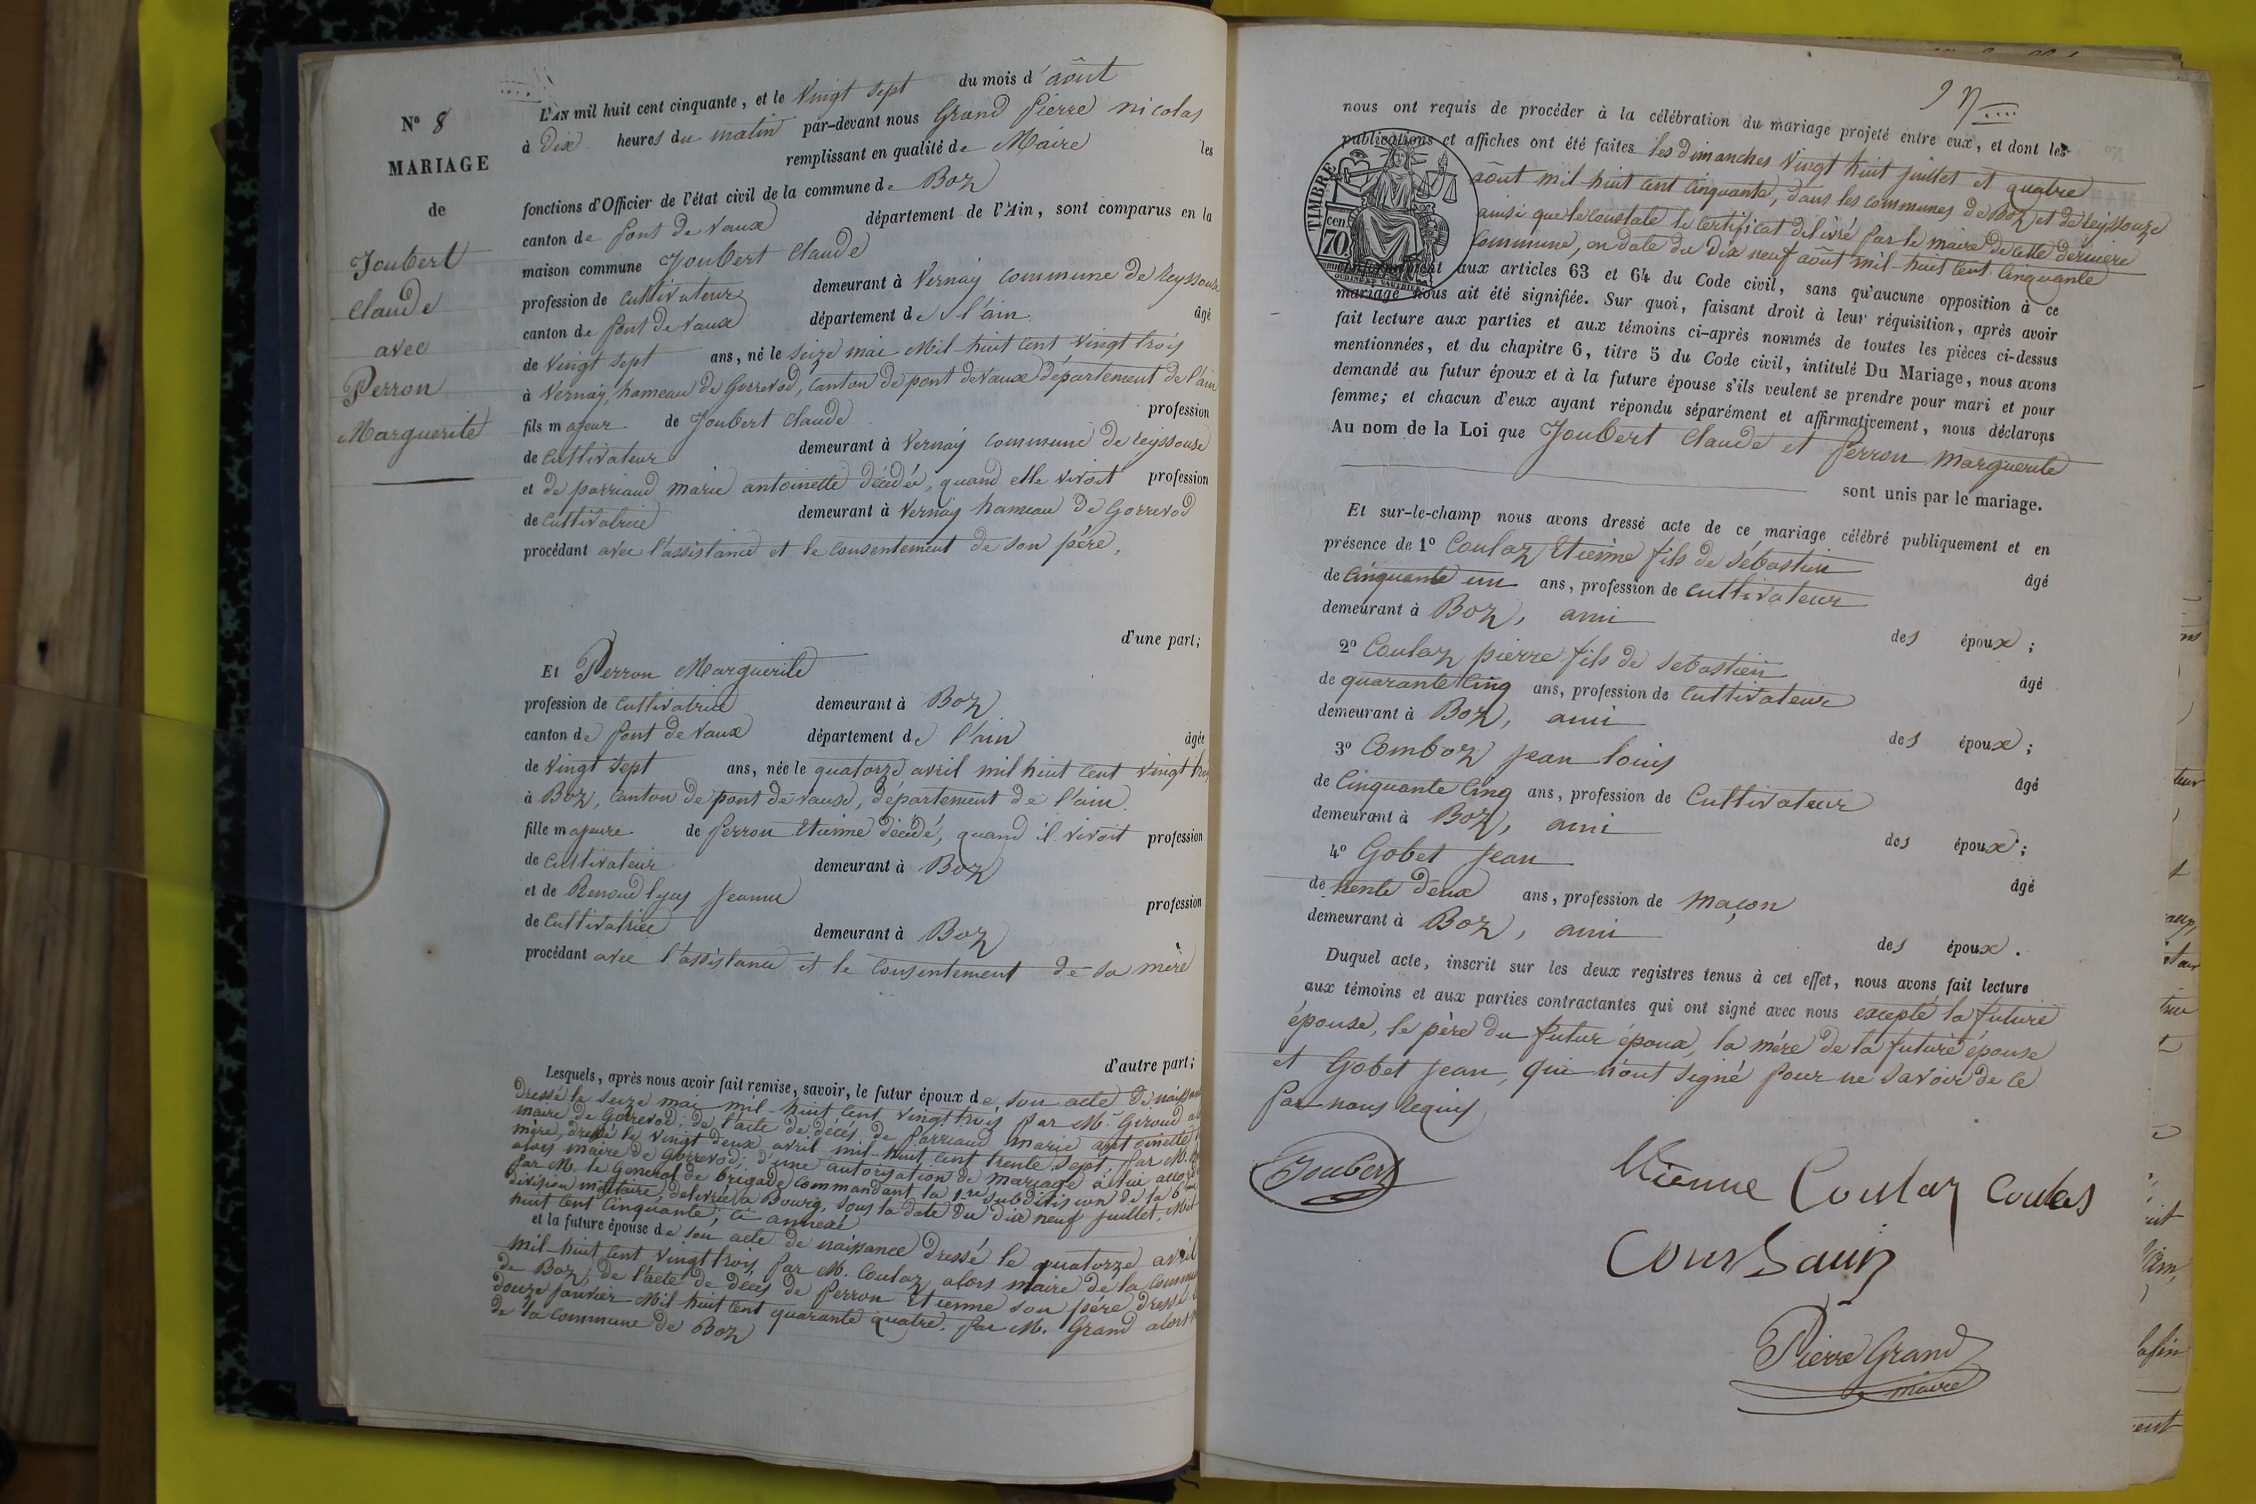 N° 8
MARIAGE
de
Joubert
Claude
avec
Perron
Marguerite
L'AN mil huit cent cinquante, et le vingt sept du mois d'août
à dix heures du matin par-devant nous Grand Pierre nicolas
remplissant en qualité de Maire les
fonctions d'Officier de l'état civil de la commune de Boz
canton de pont de Vaux département de l'Ain, sont comparus en la
maison commune Joubert Claude
profession de cultivateur demeurant à Vernay commune de Reyssouze
canton de pont de Vaux département de l'ain âgé
de vingt sept ans, né le seize mai mil huit cent vingt trois
à Vernay, hameau de Gorrevod, canton de pont de vaux département de l'ain
fils majeur de Joubert Claude profession
de cultivateur demeurant à Vernay commune de reyssouse
et de parriaud marie antoinette décédée, quand elle vivoit profession
de cultivatrice demeurant à Vernay hameau de Gorrevod
procédant avec l'assistance et le consentement de son père,
d'une part;
Et Perron Marguerite
profession de cultivatrice demeurant à Boz
canton de pont de Vaux département de l'ain âgée
de vingt sept ans, née le quatorze avril mil huit cent vingt trois
à Boz, canton de pont de vaux, département de l'ain.
fille majeure de perron Etienne décédé, quand il vivoit profession
de cultivateur demeurant à Boz
et de Renoud lyas Jeanne profession
de cultivatrice demeurant à Boz
procédant avec l'assistance et le consentement de sa mère
d'autre part;
Lesquels, après nous avoir fait remise, savoir, le futur époux de son acte de naissance
dressé le seize mai mil huit cent vingt trois par M. Giroud
maire de Gorrevod; de l'acte de décés de parriaud marie antoinette
mère, dressé le vingt deux avril mil-huit cent trente sept, par M.
alors maire de Gorrevod; d'une autorisation de mariage à lui
par M. le Général de brigade commandant la 1re subdivision de la 6me
division militaire, délivrée à Bourg, sous la date du dix neuf juillet, mil
huit cent cinquante; ci annexé
et la future épouse de son acte de naissance dressé le quatorze avril
mil-huit cent vingt trois par M. Coulaz alors maire de la commune
de Boz, de l'acte de decès de perron Etienne son père dressé
douze janvier mil huit cent quarante quatre. par M. Grand alors
de la commune de Boz
nous ont requis de procéder à la célébration du mariage projeté entre eux, et dont les
publications et affiches ont été faites les dimanches vingt huit juillet et quatre
août mil huit cent cinquante, dans les communes de Boz et de reyssouze
ainsi que le constate le certificat delivré par le maire de cette derniere
commune, en date du Dix neuf août mil-huit cent cinquante
TIMBRE
cen
70
conformément aux articles 63 et 64 du Code civil, sans qu'aucune opposition à ce
mariage nous ait été signifiée. Sur quoi, faisant droit à leur réquisition, après avoir
fait lecture aux parties et aux témoins ci-après nommés de toutes les pièces ci-dessus
mentionnées, et du chapitre 6, titre 5 du Code civil, intitulé Du Mariage, nous avons
demandé au futur époux et à la future épouse s'ils veulent se prendre pour mari et pour
femme; et chacun d'eux ayant répondu séparément et affirmativement, nous déclarons
Au nom de la Loi que Joubert Claude et perron marguerite
sont unis par le mariage.
Et sur-le-champ nous avons dressé acte de ce mariage célébré publiquement et en
présence de 1° Coulaz Etienne fils de sébastien âgé
de cinquante un ans, profession de cultivateur
demeurant à Boz, ami des époux;
2° Coulaz pierre fils de sebastien âgé
de quarante cinq ans, profession de cultivateur
demeurant à Boz, ami des époux;
3° Comboz Jean louis âgé
de cinquante cinq ans, profession de cultivateur
demeurant à Boz, ami des époux;
4° Gobet Jean âgé
de trente deux ans, profession de maçon
demeurant à Boz, ami des époux.
Duquel acte, inscrit sur les deux registres tenus à cet effet, nous avons fait lecture
aux témoins et aux parties contractantes qui ont signé avec nous excepté la future
épouse, le père du futur époux, la mère de la future épouse
et Gobet Jean, qui n'ont signé pour ne savoir de ce
par nous requis
Joubert
Etienne Coulaz Coulas
Pierre Grand
maire